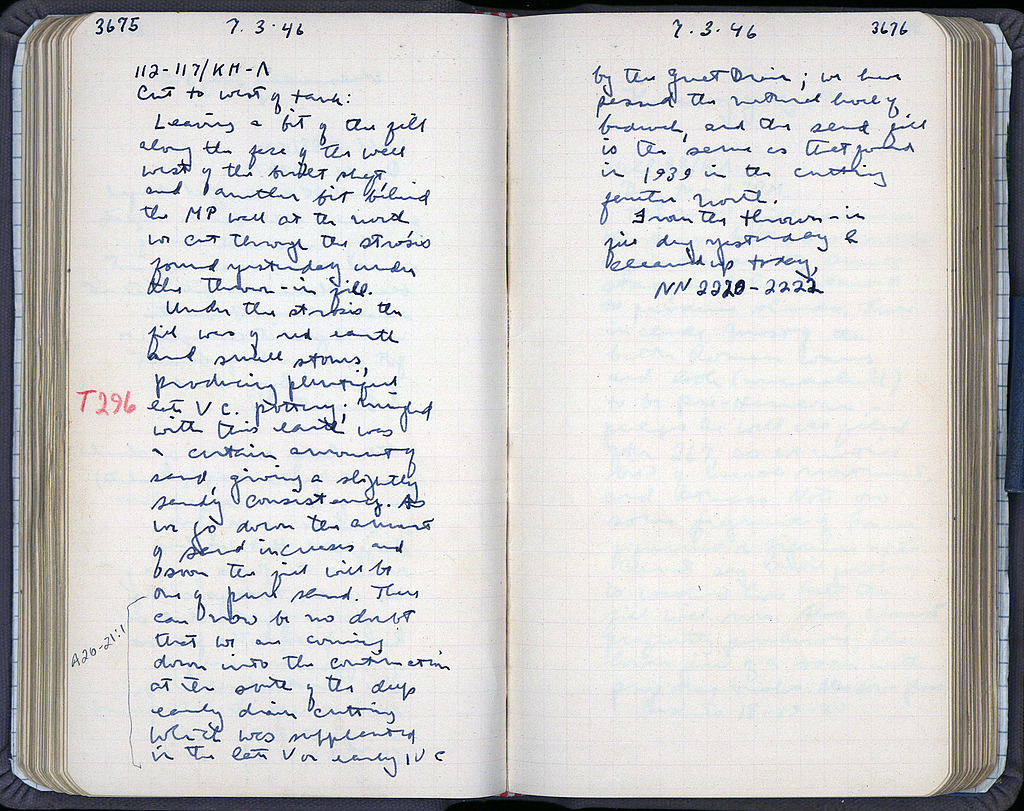 3675
7.3.46
112-117/ΚΗ-Λ
Cut to west of tank:
Leaving a bit of the fill
along the face of the wall
west of the built shaft,
and another bit behind
the MP wall at the north
we cut through the strosis
found yesterday under
the thrown-in fill.
Under the strosis the
fill was of red earth
and small stones,
producing plentiful
T296
late V c. pottery; mingled
with this earth was
a certain amount of
sand, giving a slightly
sandy consistency. As
we go down the amount
of sand increases and
soon the fill will be
one of pure sand. There
can now be no doubt
A26-21:1
that we are coming
down into the continuation
at the south of the deep
early drain cutting
which was supplanted
in the late V or early IV c
7.3.46
3676
by the Great Drain; we have
passed the natural level of
bedrock, and the sand fill
is the same as that found
in 1939 in the cutting
further north.
From the thrown-in
fill dug yesterday &
cleaned up today,
NN 2220-2222